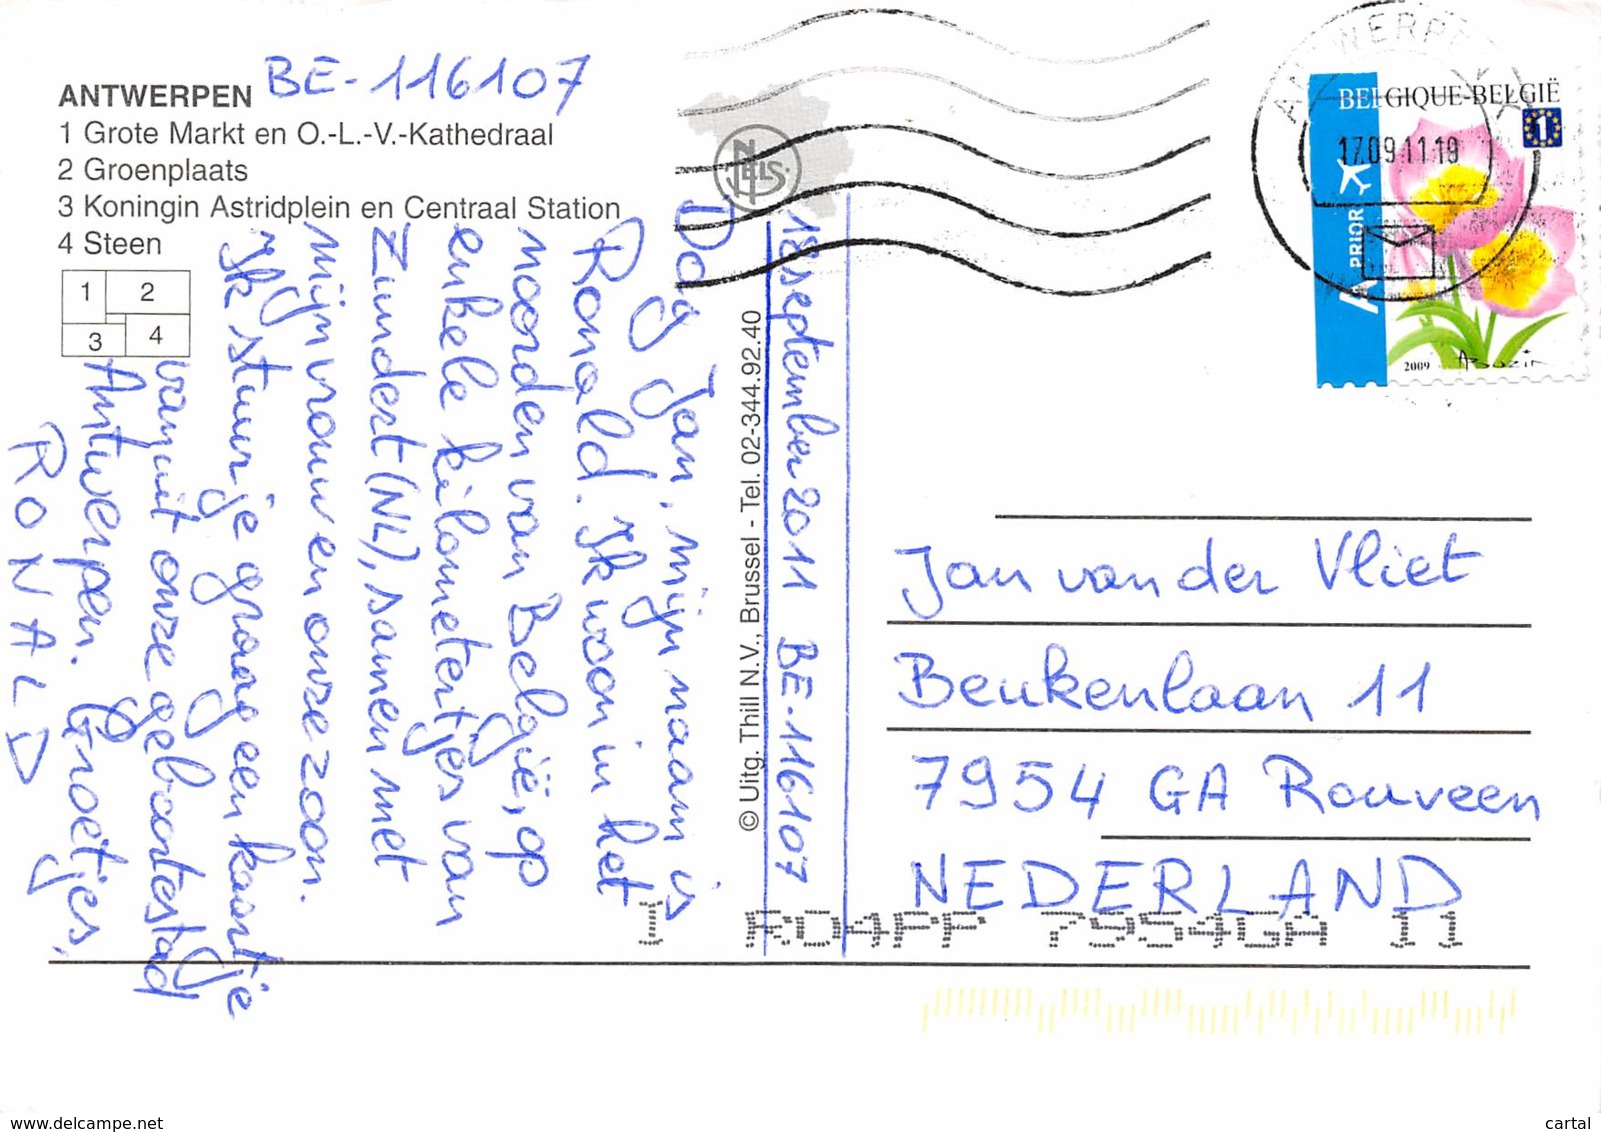 ANTWERPEN BE-116107
1 Grote Markt en O.-L.-V.-Kathedraal
2 Groenplaats
3 Koningin Astridplein en Centraal Station
4 Steen
1 2
3 4
NELS
© Uitg. Thill N.V., Brussel - Tel. 02-344.92.40
18 september 2011 BE-116107
Dag Jan, mijn naam is
Ronald. Ik woon in het
noorden van België, op
enkele kilometertjes van
Zundert (NL), samen met
mijn vrouw en onze zoon.
Ik stuur je graag een kaartje
vanuit onze geboortestad
Antwerpen. Groetjes,
RONALD
ANTWERPEN
17.09.11.19
BELGIQUE-BELGIË
1
A PRIOR
2009
Jan van der Vliet
Beukenlaan 11
7954 GA Rouveen
NEDERLAND
1 RD4PP 7954GA 11
www.delcampe.net
cartal